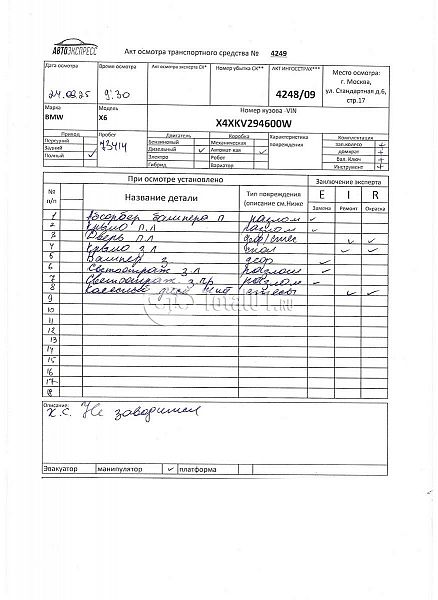 АВТОЭКСПРЕСС
Акт осмотра транспортного средства № 4249
Дата осмотра Время осмотра Акт осмотра эксперта СК* Номер убытка СК** АКТ ИНГОССТРАХ***
24.09.25 9:30 4248/09
Место осмотра:
г. Москва,
ул. Стандартная д.6,
стр.17
Марка Модель Номер кузова -VIN
BMW X6 X4XKV294600W
Привод Пробег Двигатель Коробка Характеристика повреждения Комплектация
Передний Бензиновый Механическая зап.колесо +
Задний Дизельный ✓ Автомат-кая ✓ домкрат +
Полный ✓ 73414 Электро Робот Бал. Ключ +
Гибрид Вариатор Инструмент +
При осмотре установлено Заключение эксперта
№ п/п Название детали Тип повреждения (описание см.Ниже E I R
Замена Ремонт Окраска
1 Абсорбер бампера п. разлом ✓
2 Крыло п.л разлом ✓
3 Дверь п.л ✓ ✓
4 Крыло з.л ✓ ✓
5 Бампер з. деф ✓
6 Светоотраж з.л разлом ✓
7 Светоотраж з.пр разлом ✓
8 ✓ ✓
9
10
11
12
13
14
15
16
17
18
TOTAL01.RU
Описание:
х.с. Не заводится
Эвакуатор манипулятор ✓ платформа